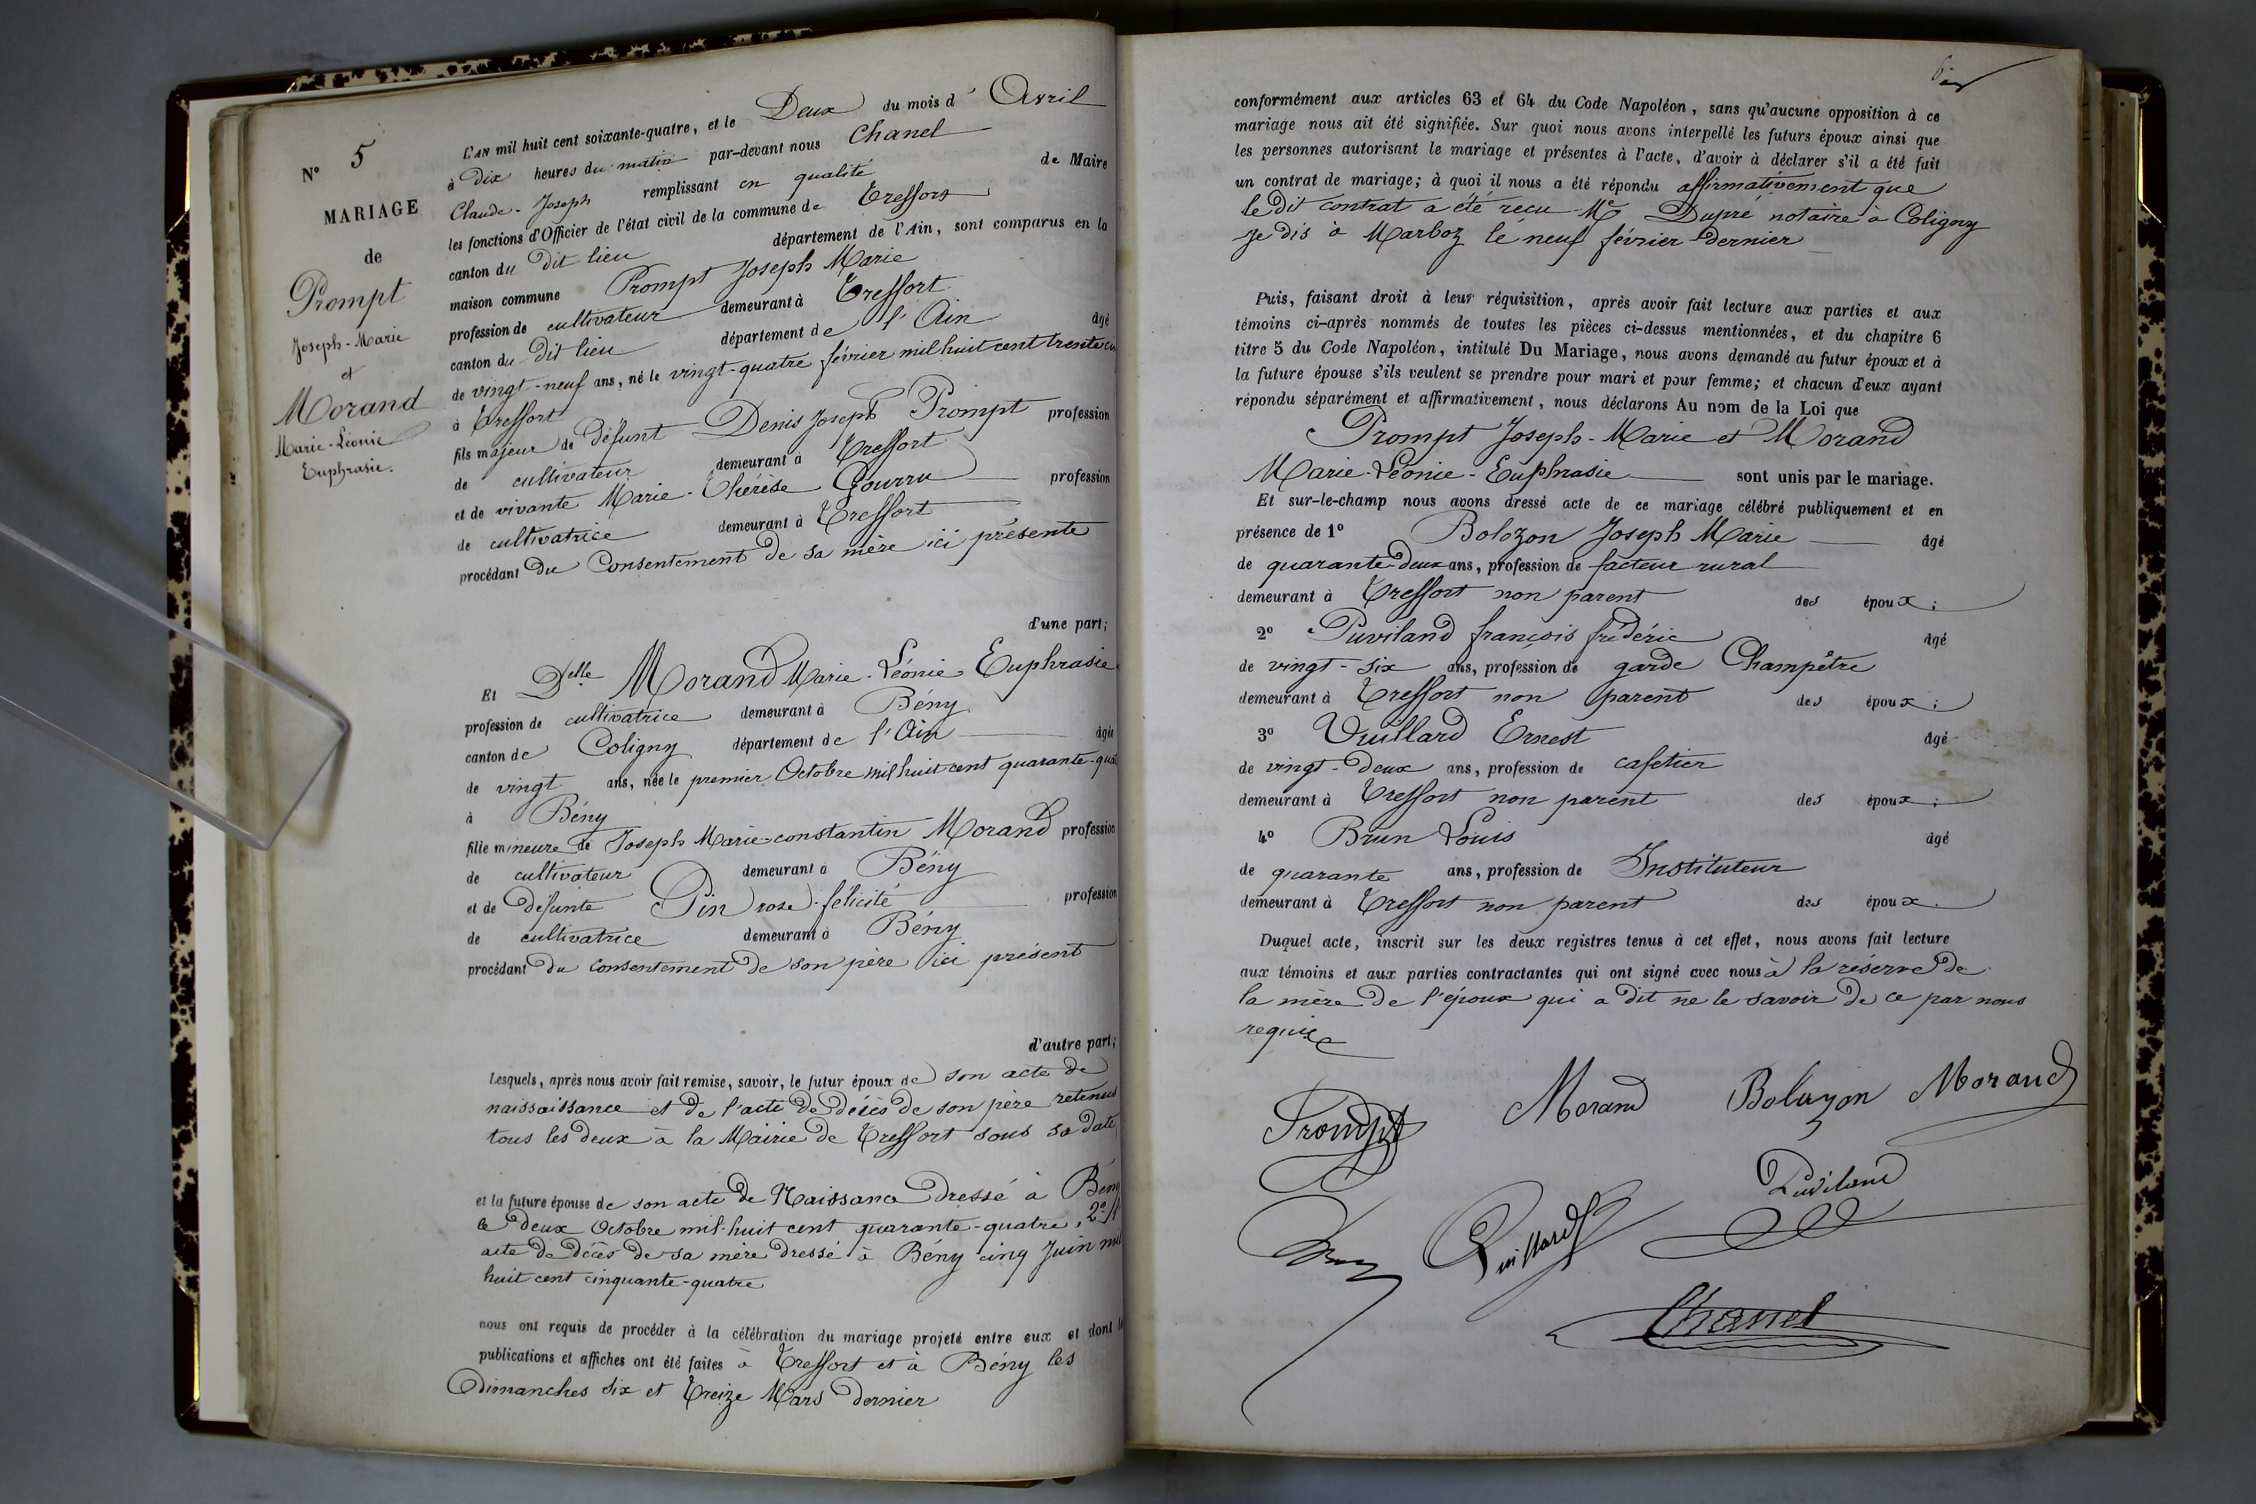 N° 5
MARIAGE
de
Prompt
Joseph-Marie
et
Morand
Marie-Léonie
Euphrasie.
L'AN mil huit cent soixante-quatre, et le Deux du mois d' Avril
à dix heures du matin par-devant nous Chanel
Claude-Joseph remplissant en qualité de Maire
les fonctions d'Officier de l'état civil de la commune de Treffort
canton du dit lieu département de l'Ain, sont comparus en la
maison commune Prompt Joseph Marie
profession de cultivateur demeurant à Treffort
canton du dit lieu département de l'Ain âgé
de vingt-neuf ans, né le vingt-quatre février mil huit cent trente
à Treffort
fils majeur de défunt Denis Joseph Prompt profession
de cultivateur demeurant à Treffort
et de vivante Marie-Thérèse Gourru profession
de cultivatrice demeurant à Treffort
procédant du Consentement de sa mère ici présente
d'une part;
Et Delle Morand Marie-Léonie Euphrasie
profession de cultivatrice demeurant à Bény
canton de Coligny département de l'Ain âgée
de vingt ans, née le premier Octobre mil huit cent quarante-quat
à Bény
fille mineure de Joseph Marie-constantin Morand profession
de cultivateur demeurant à Bény
et de défunte Pin rose-félicité profession
de cultivatrice demeurant à Bény
procédant du consentement de son père ici présent
d'autre part;
Lesquels, après nous avoir fait remise, savoir, le futur époux de son acte de
naissaissance et de l'acte de décès de son père retenus
tous les deux à la Mairie de Treffort sous sa date
et la future épouse de son acte de Naissance dressé à Bény
le deux Octobre mil-huit cent quarante-quatre, 2°
acte de décès de sa mère dressé à Bény cinq Juin mil
huit cent cinquante-quatre
nous ont requis de procéder à la célébration du mariage projeté entre eux et dont le
publications et affiches ont été faites à Treffort et à Bény les
dimanches six et treize Mars dernier
conformément aux articles 63 et 64 du Code Napoléon, sans qu'aucune opposition à ce
mariage nous ait été signifiée. Sur quoi nous avons interpellé les futurs époux ainsi que
les personnes autorisant le mariage et présentes à l'acte, d'avoir à déclarer s'il a été fait
un contrat de mariage; à quoi il nous a été répondu affirmativement que
le dit contrat a été reçu Me Dupré notaire à Coligny
je dis à Marboz le neuf février dernier
Puis, faisant droit à leur réquisition, après avoir fait lecture aux parties et aux
témoins ci-après nommés de toutes les pièces ci-dessus mentionnées, et du chapitre 6
titre 5 du Code Napoléon, intitulé Du Mariage, nous avons demandé au futur époux et à
la future épouse s'ils veulent se prendre pour mari et pour femme; et chacun d'eux ayant
répondu séparément et affirmativement, nous déclarons Au nom de la Loi que
Prompt Joseph-Marie et Morand
Marie-Léonie-Euphrasie sont unis par le mariage.
Et sur-le-champ nous avons dressé acte de ce mariage célébré publiquement et en
présence de 1° Bolozon Joseph Marie âgé
de quarante-deux ans, profession de facteur rural
demeurant à Treffort non parent des époux;
2° Puviland françois frédéric âgé
de vingt-six ans, profession de garde Champêtre
demeurant à Treffort non parent des époux;
3° Vuillard Ernest âgé
de vingt-deux ans, profession de cafetier
demeurant à Treffort non parent des époux;
4° Brun Louis âgé
de quarante ans, profession de Instituteur
demeurant à Treffort non parent des époux.
Duquel acte, inscrit sur les deux registres tenus à cet effet, nous avons fait lecture
aux témoins et aux parties contractantes qui ont signé avec nous à la réserve de
la mère de l'époux qui a dit ne le savoir de ce par nous
requise
Prompt Morand Bolozon Morand
Puviland
Brun Vuillard
Chanel